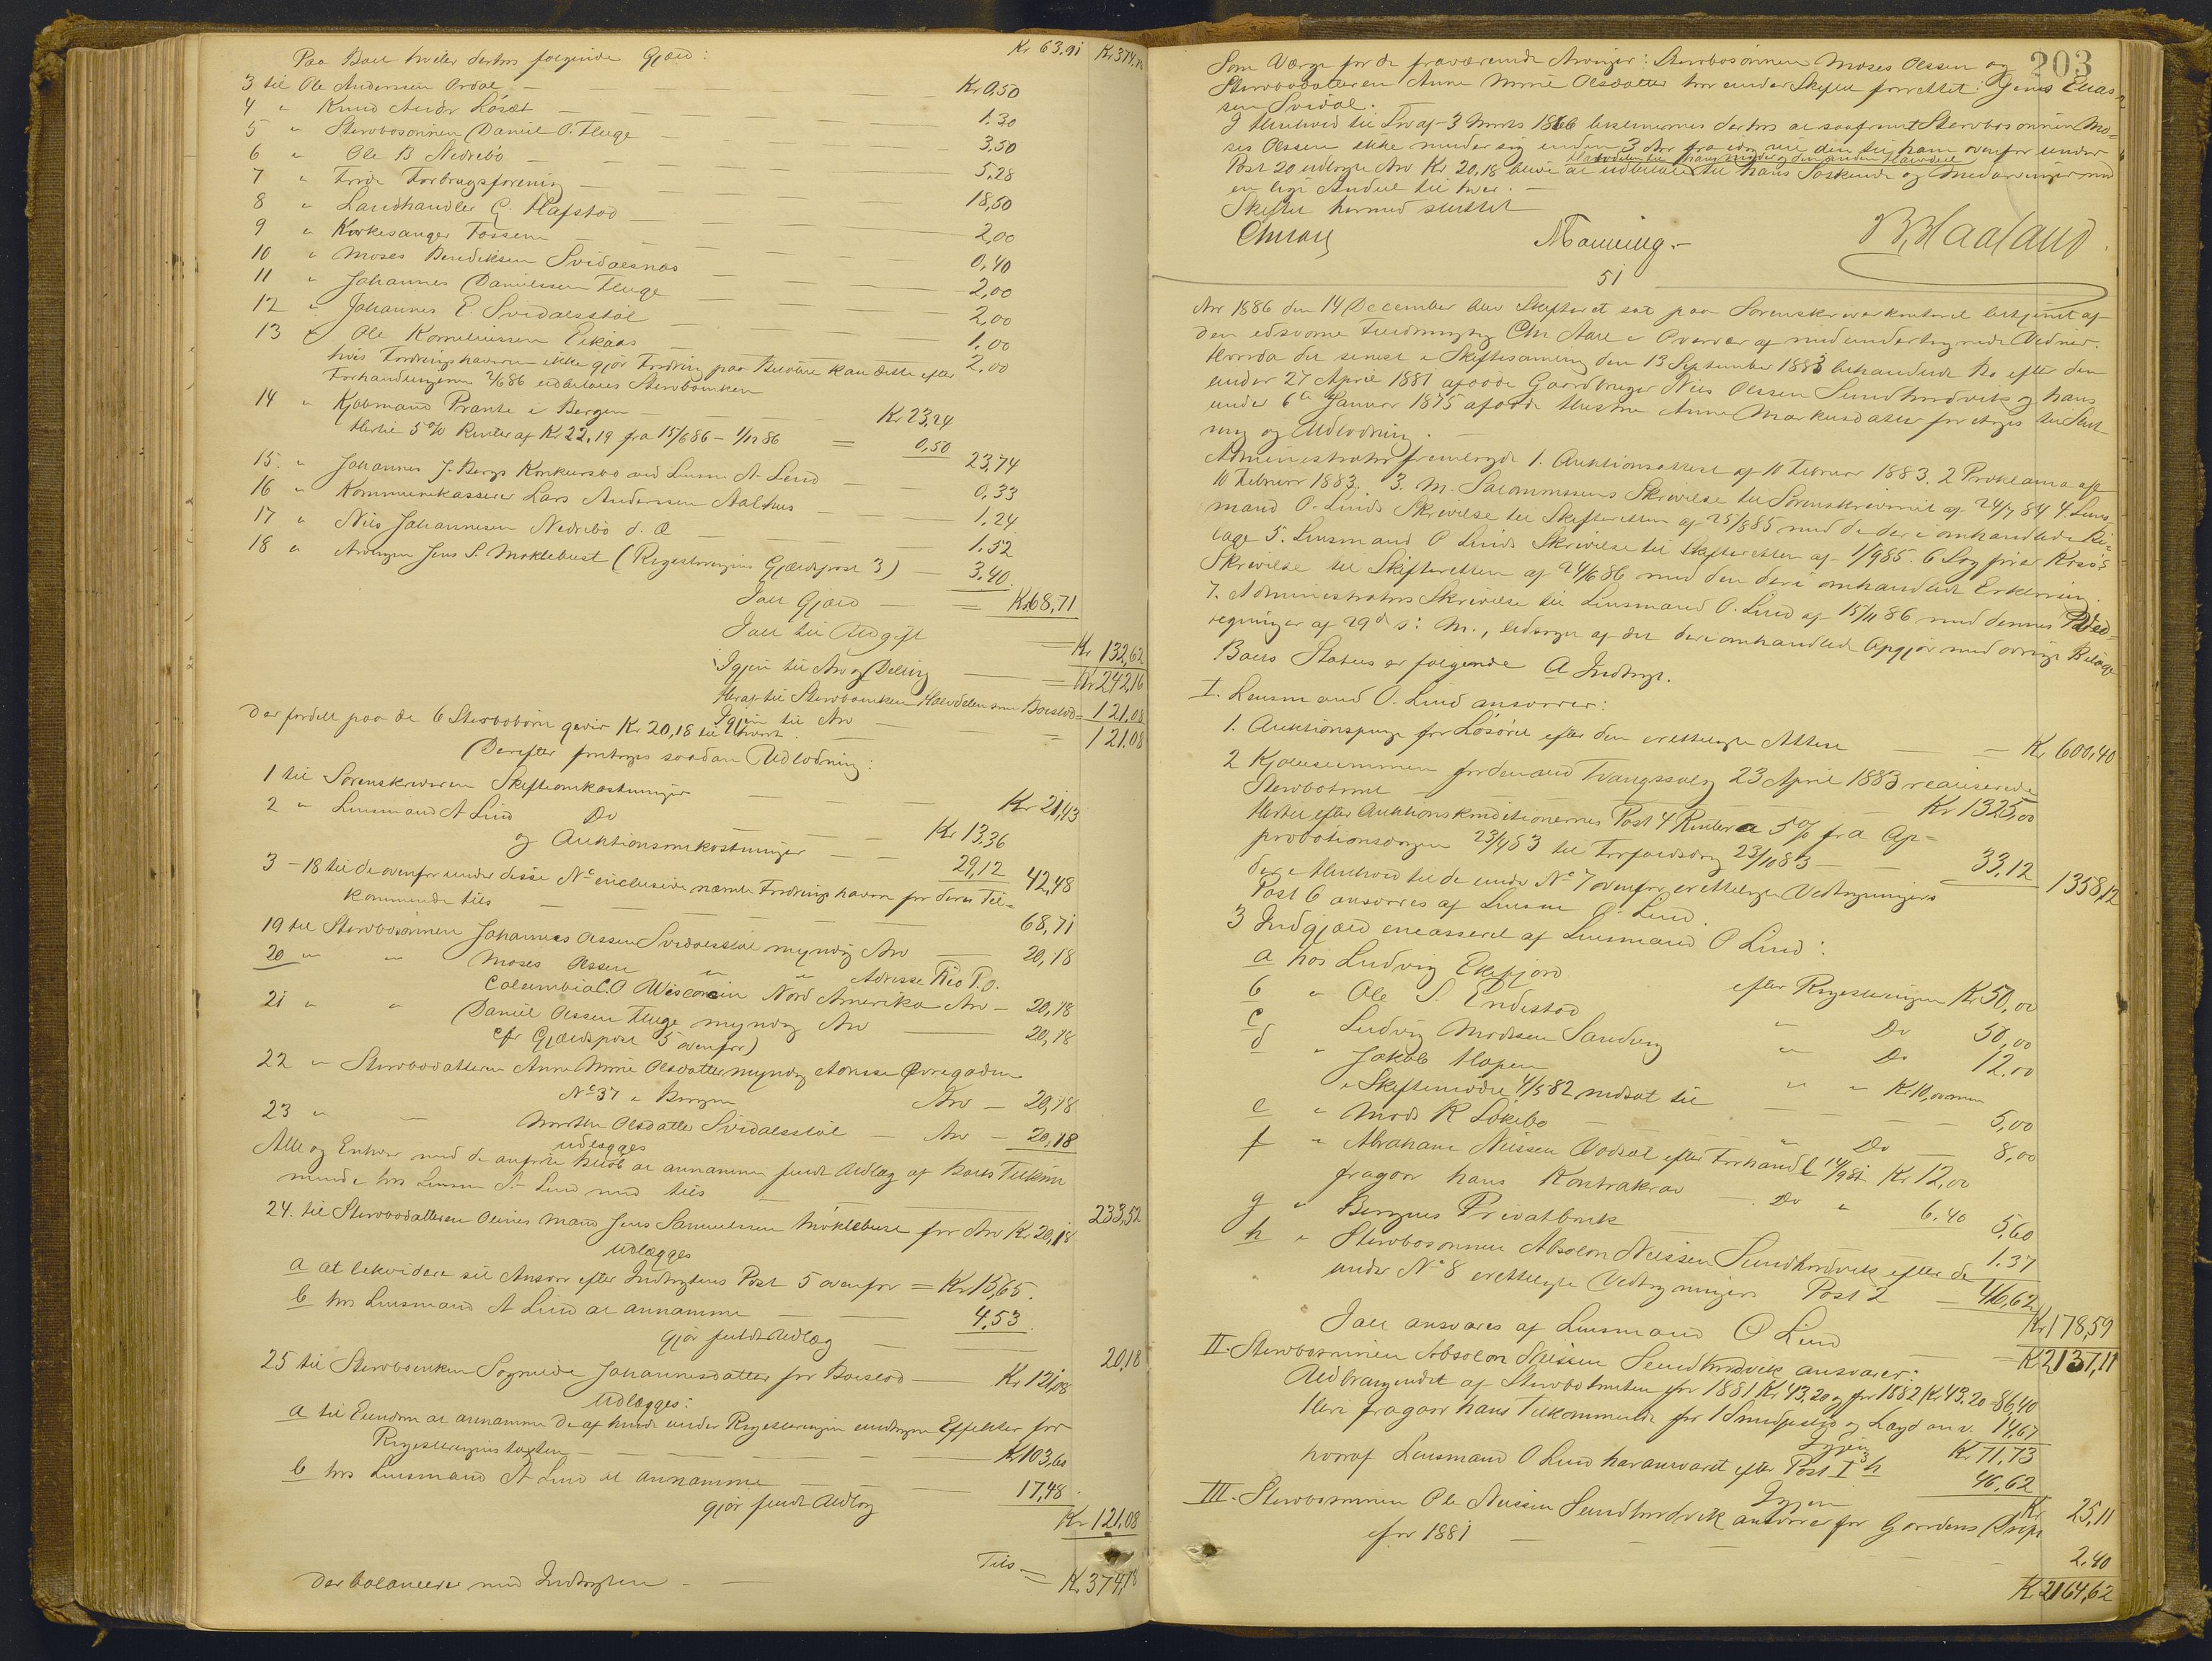 Kr 63.91 Kr 374,78
Paa Boet hviler derhos følgende Gjæld:
3 til Ole Anderssen Ordal Kr 0,50
4 " Knud Andr Løsæt 1.30
5 " Stervbosønnen Daniel O. Fluge 3,50
6 " Ole B Nedrebø 5,28
7 " Førde Forbrugsforening 18,50
8 " Landhandler G. Hafstad 2,00
9 " Kirkesanger Fossem 0,40
10 " Moses Bendiksen Svidalsnæs 2,00
11 " Johannes Danielssen Fluge 2,00
12 " Johannes E. Svidalsstøl 1.00
13 " Ole Korneliussen Eikaas 2.00
hvis Fordringshaveren ikke gjør Fordring paa Beløbet kan dette efter
Forhandlingerne 2/6 86 udbetales Stervboenken
14 " Kjøbmand Prante i Bergen Kr 23,24
Hertil 5 % Renter af Kr 22,19 fra 15/6 86 – 1/12 86 = 0,50 23,74
15. " Johannes J. Bergs Konkursbo ved Lensm A. Lund 0,33
16 " Kommunekasserer Lars Anderssen Aalhus 1,24
17 " Nils Johannesen Nedrebø d. Æ 1.52
18 " Arvingen Jens S. Moklebust (Registreringens Gjældspost 3) 3,40.
Ialt Gjæld = Kr 68,71
Ialt til Udgift = Kr 132,62
Igjen til Arv og Deling = Kr 242,16
Heraf til Stervboenken Halvdelen som Boeslod = 121.08
Igjen til Arv = 121.08
Der fordelt paa de 6 Stervbobørn giver Kr 20,18 til hvert.
Derefter foretoges saadan Udlodning:
1 til Sorenskriveren Skifteomkostninger Kr 21,43
2 " Lensmand A Lund Do Kr 13.36
og Auktionsomkostninger 29,12 42,48
3 – 18 til de ovenfor under disse No inclusive nævnte Fordringshavere for deres Til-
kommende tils 68,71
19 til Stervbosønnen Johannes Olssen Svidalsstøl myndig Arv 20,18
20 " " Moses Olssen " " Adresse Rio P.O.
Columbia C.O Wisconsin Nord Amerika Arv – 20,18
21 " " Daniel Olssen Fluge myndig Arv 20,18
(cfr Gjældspost 5 ovenfor)
22 " Stervbodatteren Anne Marie Olsdatter myndig Adresse Øvregaden
No 37 i Bergen Arv – 20,18
23 " " Marthe Olsdatter Svidalsstøl – Arv – 20,18
udlægges
Alle og Enhver med de anførte Beløb at annamme fuldt Udlæg af Boets Tilkom
mende hos Lensm A. Lund med tils 233,52
24. til Stervbodatteren Olines Mand Jens Samuelssen Moklebust for Arv Kr 20,18
udlægges
a at likvidere sit Ansvar efter Indtægtens Post 5 ovenfor = Kr 15,65.
b hos Lensmand A Lund at annamme 4,53.
gjør fuldt Udlæg 20,18
25 til Stervboenken Sognelde Johannesdatter for Boeslod Kr 121,08
udlægges:
a til Eiendom at annamme de af hende under Registreringen undtagne Effekter for
Registreringens taxten Kr 103,60
b hos Lensmand A Lund at annamme 17,48.
gjør fuldt Udlæg Kr 121.08
Tils = Kr 374,78
der balancerer med Indtægten.
203
Som Værge for de fraværende Arvinger: Stervbosønnen Moses Olssen og
Stervbodatteren Anne Marie Olsdatter har under Skiftet forrettet: Jens Elias-
sen Svidal.
I Henhold til Lov af 3 Marts 1866 bestemmes derhos at saafremt Stervbosønnen Mo-
ses Olssen ikke melder sig inden 3 Aar fra idag vil den til ham ovenfor under
Post 20 udlagte Arv Kr. 20,18 blive at udbetale Halvdelen til hans Moder og den anden Halvdeel til hans Søskende og Medarvinger med
en lige Andeel til hver. –
Skiftet hermed sluttet
Chr Aall Manning. – B. Haaland
51
Aar 1886 den 14 December blev Skifteret sat paa Sorenskriverkontoret betjent af
den edsvorne Fuldmægtig Chr Aall i Overvær af medundertegnede Vidner.
Hvorda det senest i Skiftesamling den 13 September 1883 behandlede Bo efter den
under 27 April 1881 afdøde Gaardbruger Nils Olssen Sundhordvik og hans
under 6te Januar 1875 afdøde Hustru Anne Markusdatter foretoges til Slut-
ning og Udlodning.
Administrator fremlagde 1. Auktionsattest af 10 Februar 1883. 2 Proklama af
10 Februar 1883. 3. M. Salamonssens Skrivelse til Sorenskriveriet af 24/7 84 4. Lens-
mand O. Lunds Skrivelse til Skifteretten af 25/8 85 med de deri omhandlede Bi-
lage 5. Lensmand O Lunds Skrivelse til Skifteretten af 1/9 85. 6
Skrivelse til Skifteretten af 24/6 86 med den deri omhandlede Erklæring.
7. Administrators Skrivelse til Lensmand O. Lund af 15/11 86 med dennes Paateg-
ninger af 29de s: M., ledsaget af det deri omhandlede Opgjør med øvrige Bilage
Boets Status er følgende A Indtægt.
I. Lensmand O. Lund ansvarer:
1. Auktionspenge for Løsøret efter den erettelagte Attest Kr 600,40
2 Kjøbesummen for den ved Tvangssalg 23 April 1883 realiserede
Stervbotomt Kr 1325,00
Hertil efter Auktionskonditionernes Post 4 Renter a 5 % fra Ap-
probationsdagen 23/4 83 til Forfaldsdag 23/10 83 33.12 1358,12
der i Henhold til de under No 7 ovenfor erettelagte Vedtegninger
Post 6 ansvares af Lensm O. Lund.
3 Indgjæld incasseret af Lensmand O Lund:
a hos Ludvig Ekefjord efter Registreringen Kr 50,00
b " Ole S. Endestad " Do 50,00
c Ludvig Madssen Sandvig " Do 12.00
d " Jakob Hopen " " Kr 10,00 men
i Skiftemøde 4/5 82 nedsat til 5,00
e " Mads R Løkebø " Do 8,00
f " Abraham Nilssen Vadsøl efter Forhandl 14/9 81 Kr 12,00
fragaar hans Kontrakrav Do " 6.40 5,60
g " Bergens Privatbank 1.37
h " Stervbosønnen Absolon Nilssen Sundhordvik efter de
under No 8 erettelagte Vedtegninger Post 2 46,62 Kr 178,59
Ialt ansvares af Lensmand O Lund = Kr 2137,11
II. Stervbosønnen Absolon Nilssen Sundhordvik ansvarer:
Udbragendet af Stervbotomten for 1881 Kr 43,20 og for 1882 Kr 43.20 = 86,40
Heri fragaar hans Tilkommende for 1 Smedjeslag og Lagd m. v. 14,67
Igjen Kr 71,73
hvoraf Lensmand O Lund har anvaret efter Post I 3 h 46,62
Igjen Kr 25,11
III. Stervbosønnen Ole Nilssen Sundhordvik ansvarer for Gaardens Drift
for 1881 2.40
Kr 2164,62